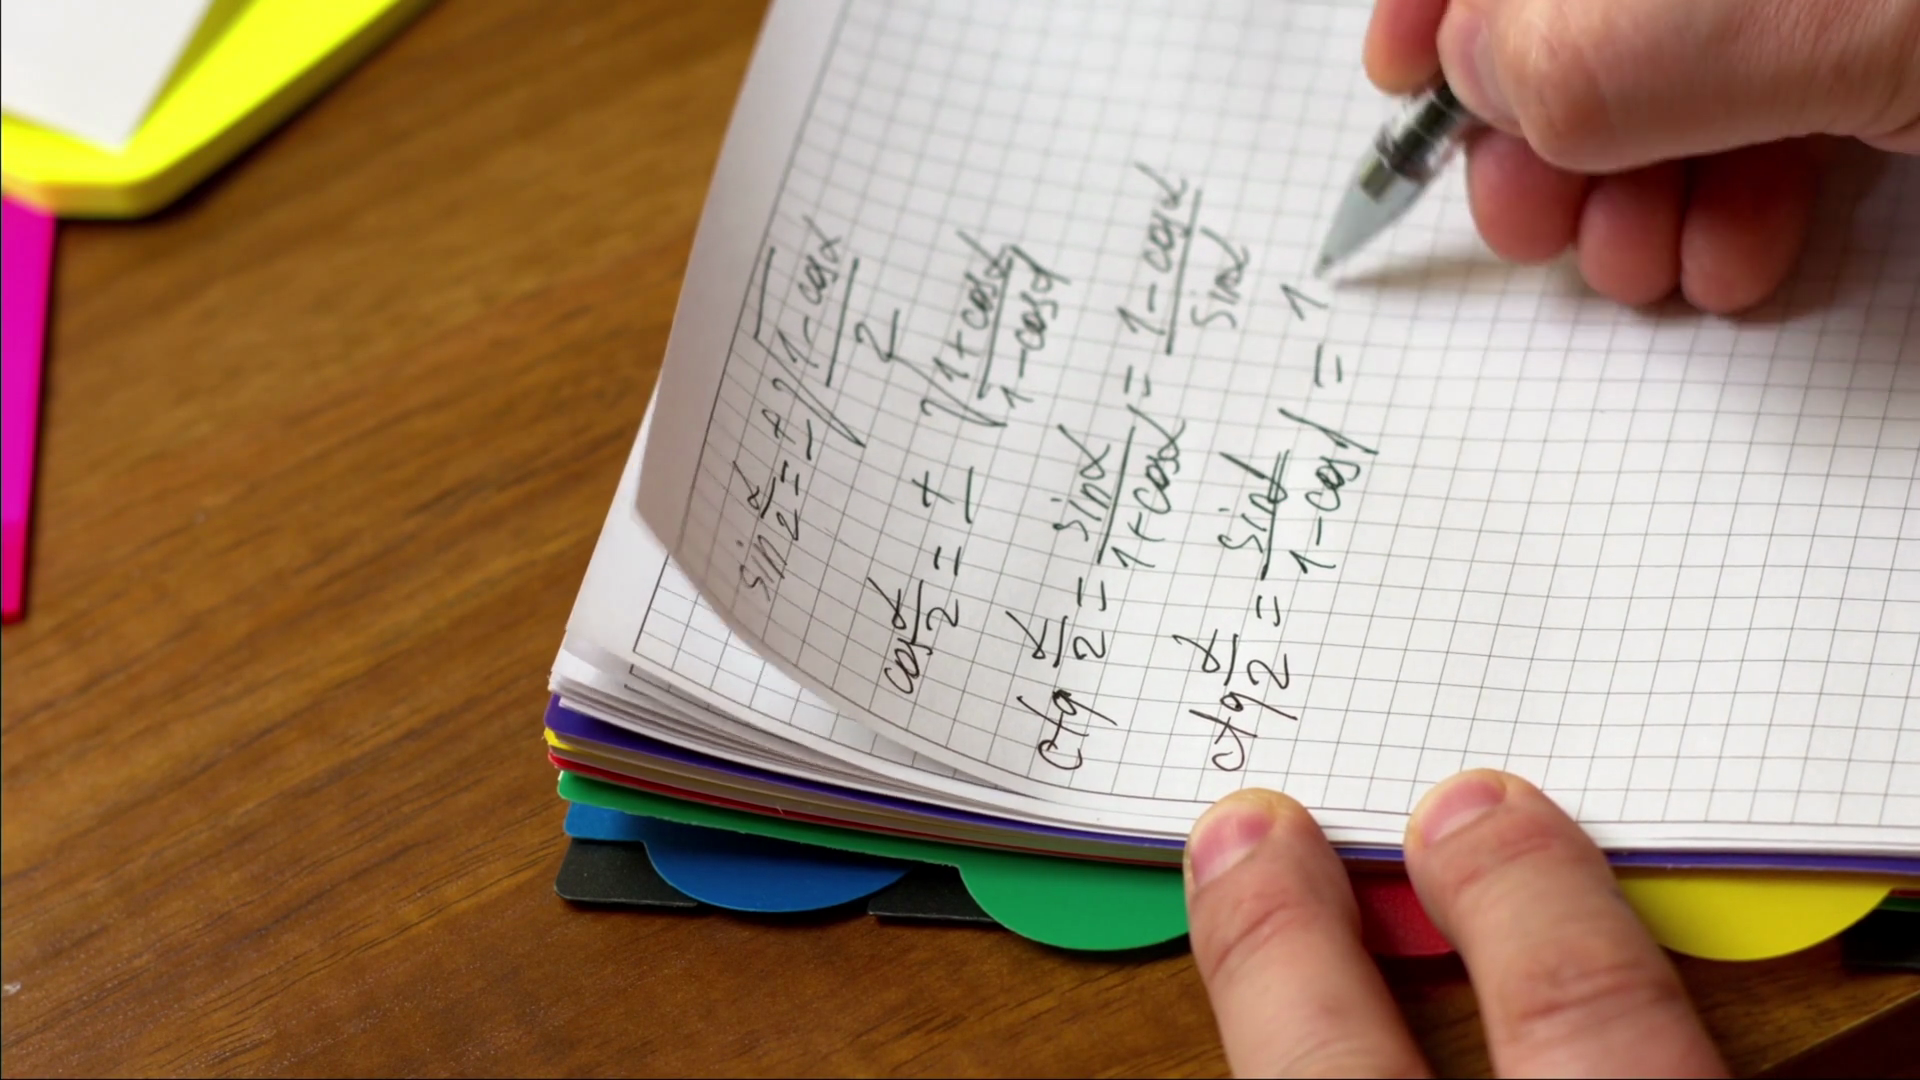 sin α/2 = ± √(1-cosα / 2)
cos α/2 = ± √(1+cosα / 1-cosα)
ctg α/2 = sinα / 1+cosα = 1-cosα / sinα
ctg α/2 = sinα / 1-cosα = 1